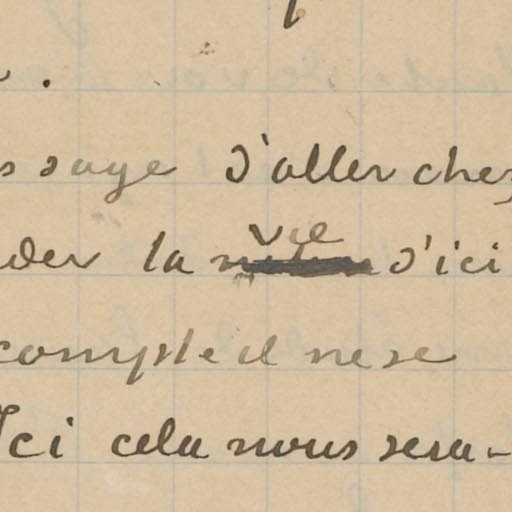 s sage d'aller chez
der la vie d'ici
compte il ne se
Ici cela nous sera-